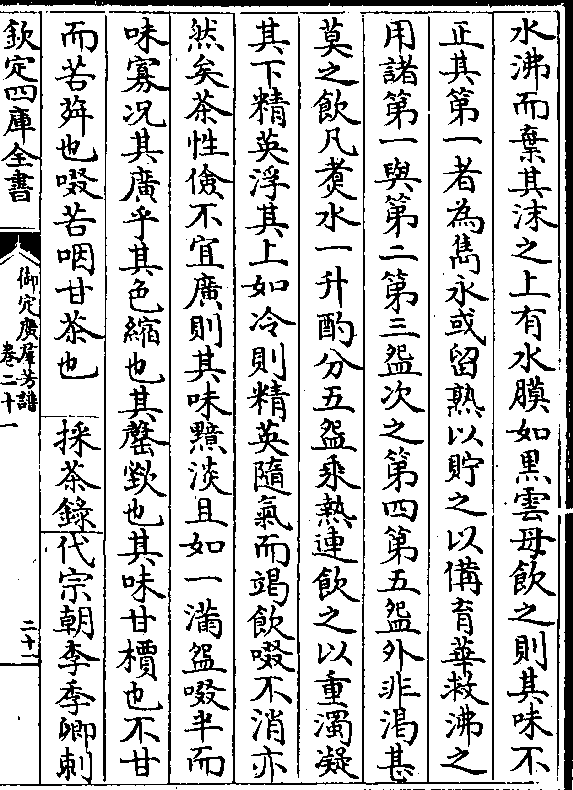 水沸而棄其沫之上有水膜如黒雲母飲之則其味不
正其第一者為雋永或留熟以貯之以備育華救沸之
用諸第一與第二第三盌次之第四第五盌外非渇甚
莫之飲凡煑水一升酌分五盌乘熱連飲之以重濁凝
其下精英浮其上如冷則精英隨氣而竭飲啜不消亦
然矣茶性儉不宜廣則其味黯淡且如一滿盌啜半而
味寡况其廣乎其色緗也其馨㱔也其味甘檟也不甘
而苦荈也啜苦咽甘茶也 採茶錄代宗朝李季卿刺
欽定四庫全書
御定廣羣芳譜
卷二十一
二十二